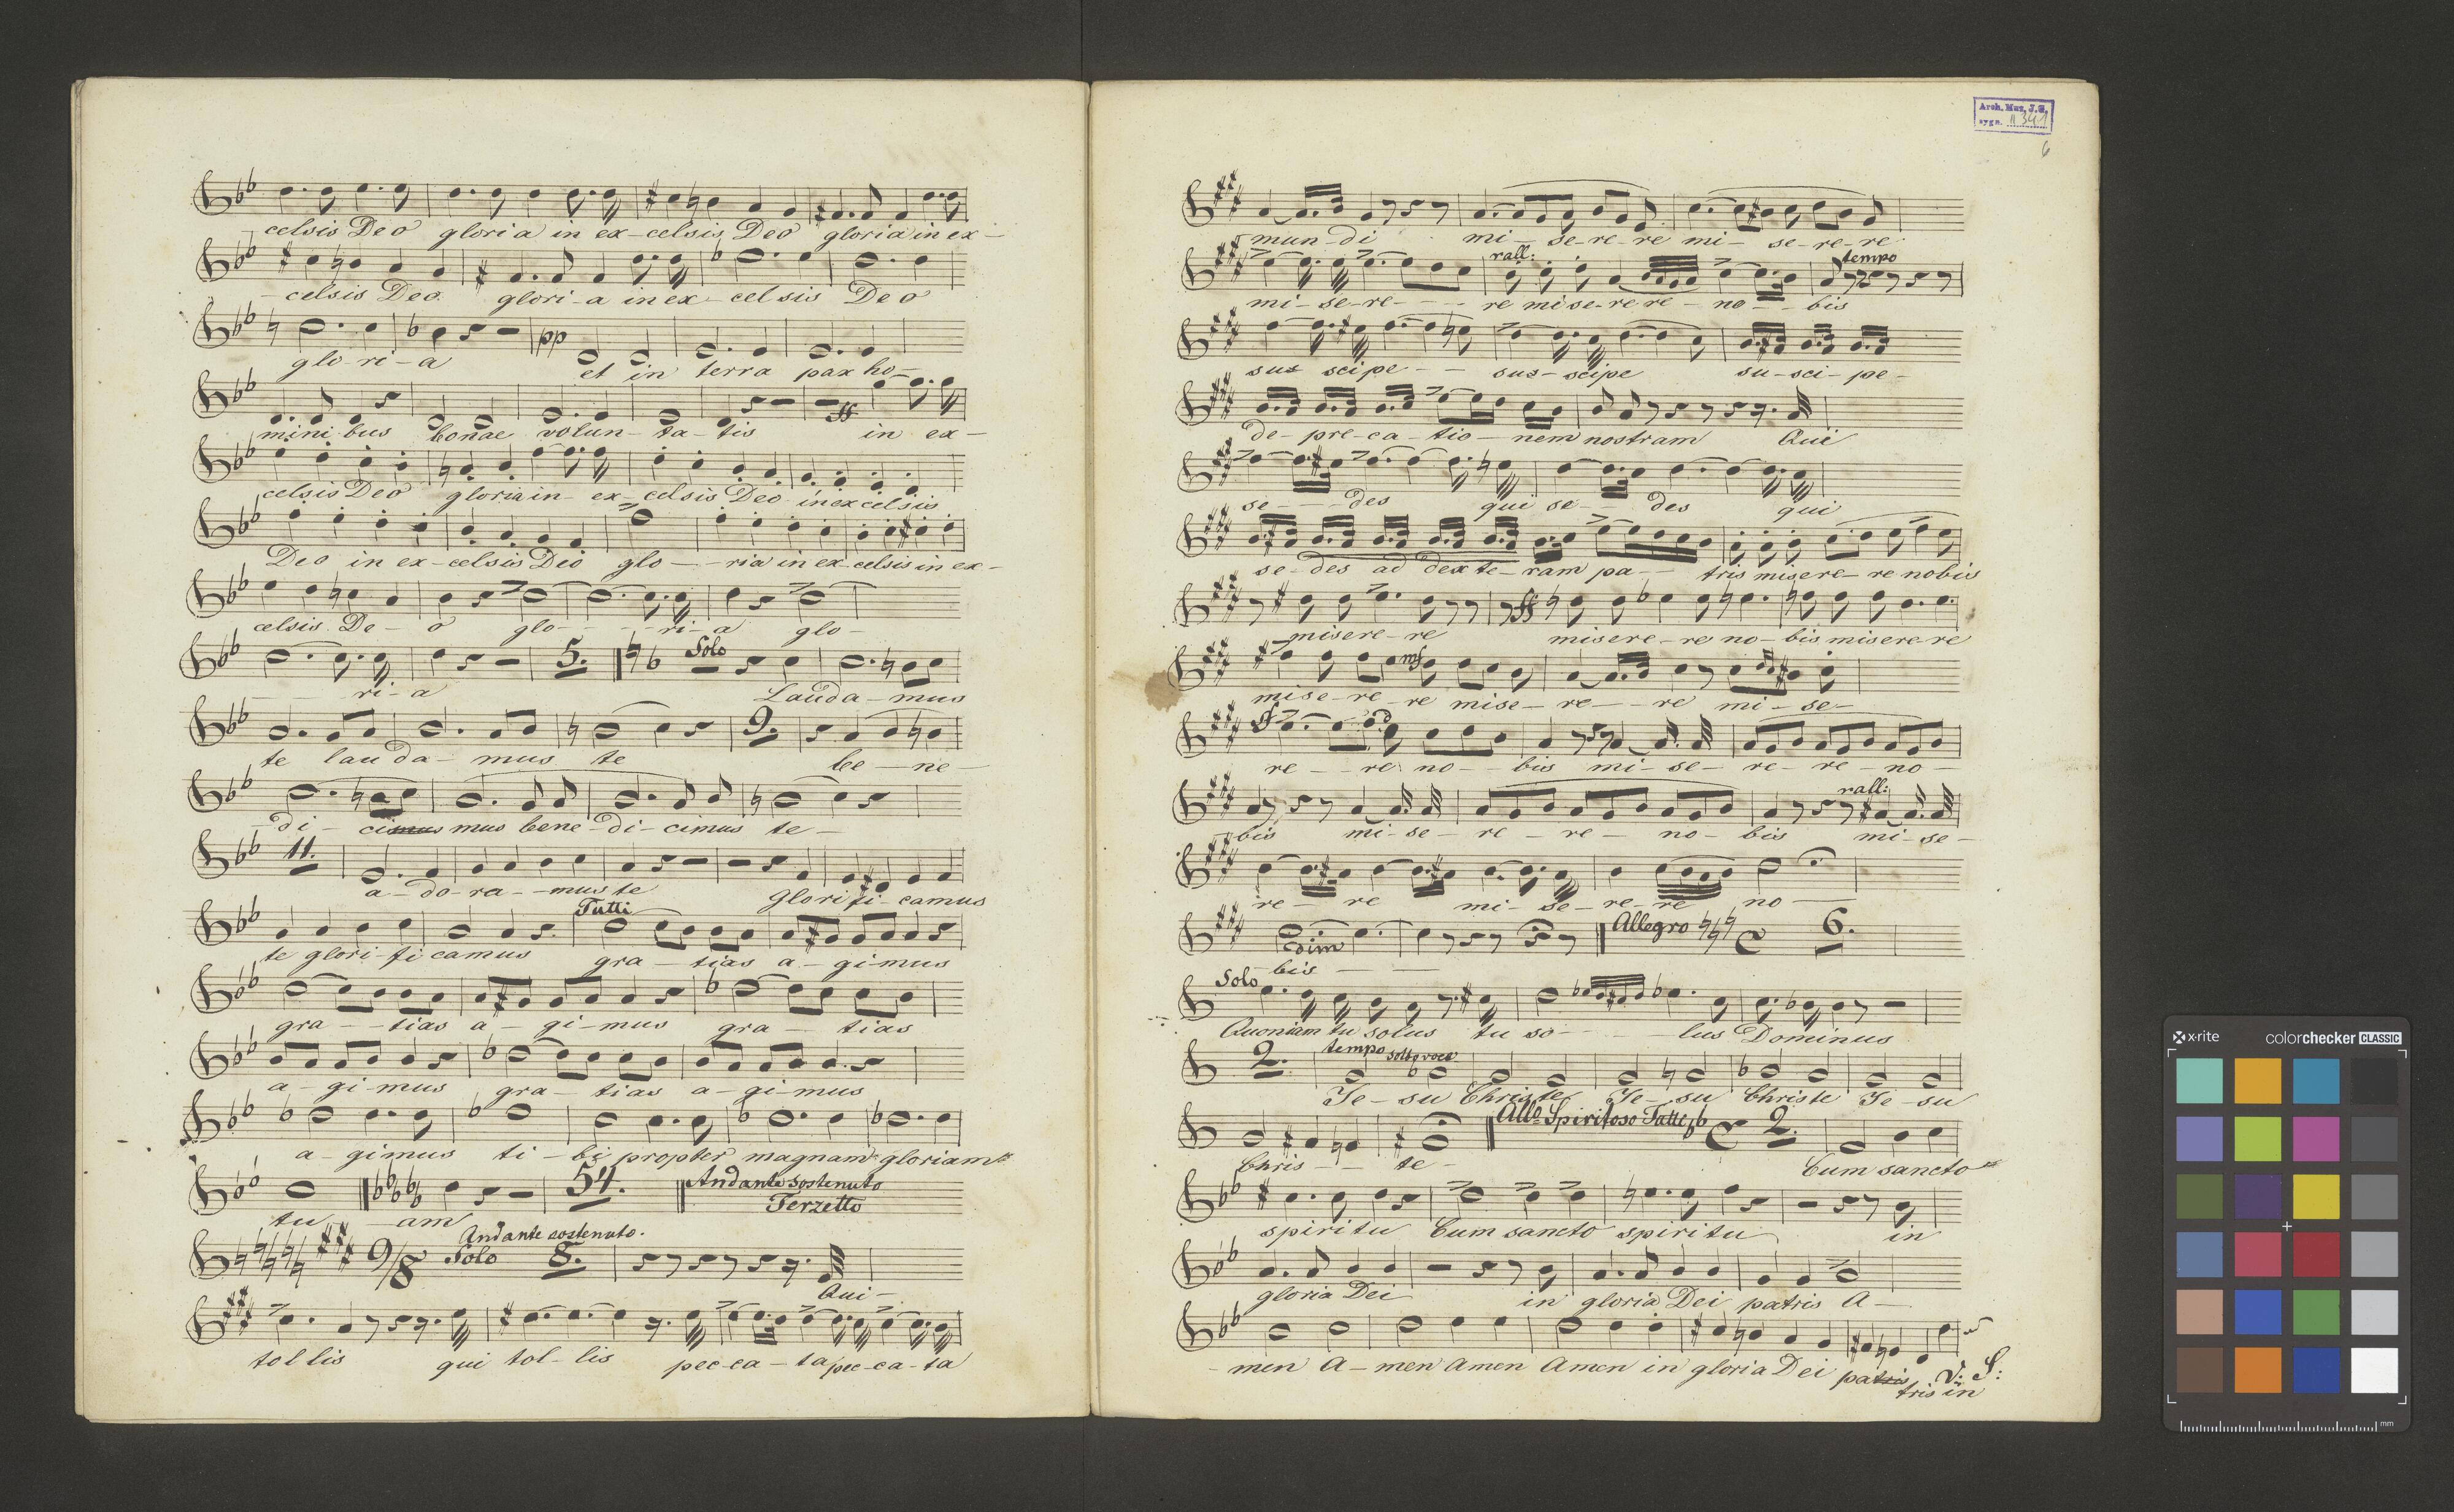 celsis Deo gloria in ex-celsis Deo gloria in ex-
-celsis Deo glori-a in ex-celsis Deo
glo-ri-a
pp
et in terra pax ho-
ff
mini bus bonae volun-ta-tis in ex-
celsis Deo gloria in-ex-celsis Deo in excelsis
Deo in ex-celsis Deo glo--ria in ex-celsis in ex-
celsis De-o glo---ri-a glo-
5. Solo
--ri-a Lauda-mus
9.
te lauda-mus te be-ne-
-di-cimus mus bene-di-cimus te-
11.
a-do-ra--mus te glorifi-camus
Tutti
te glori-fi camus gra-tias a-gi-mus
gra--tias a-gi-mus gra-tias
a-gi-mus gra-tias a-gi-mus
a-gimus ti-bi propter magnam gloriam
54. Andante sostenuto
Terzetto
tu-am
Andante sostenuto.
9/8 Solo 8.
Qui-
tol lis qui tol-lis pec-ca-ta pec-ca-ta
Arch. Muz. J.G.
sygn. II 341
6
mun-di mi-se-re-re mi-se-re-re
rall: tempo
mi-se-re---re mise-re re-no--bis
sus scipe-- sus-scipe su-sci-pe-
de-pre-ca-tio-nem nostram Qui
se---des qui se-des qui
se-des ad dexte-ram pa--tris misere-re nobis
ff
misere-re misere-re no-bis misere-re
mf
mise-re-re mise-re--re mi-se-
sf
re--re no--bis mi-se-re-re-no-
rall:
bis mi-se-re-re-no-bis mi-se-
re-re mi-se-re-re no-
dim Allegro C 6.
bis--
Solo
Quoniam tu solus tu so---lus Dominus
2. tempo sotto voce
Je-su Christe Je-su Christe Je-su
Allo Spiritoso Tutti C 2.
Chris--te- Cum sancto
spiritu Cum sancto spiritu in
gloria Dei in gloria Dei patris A-
-men A-men Amen Amen in gloria Dei patris
V: S:
tris in